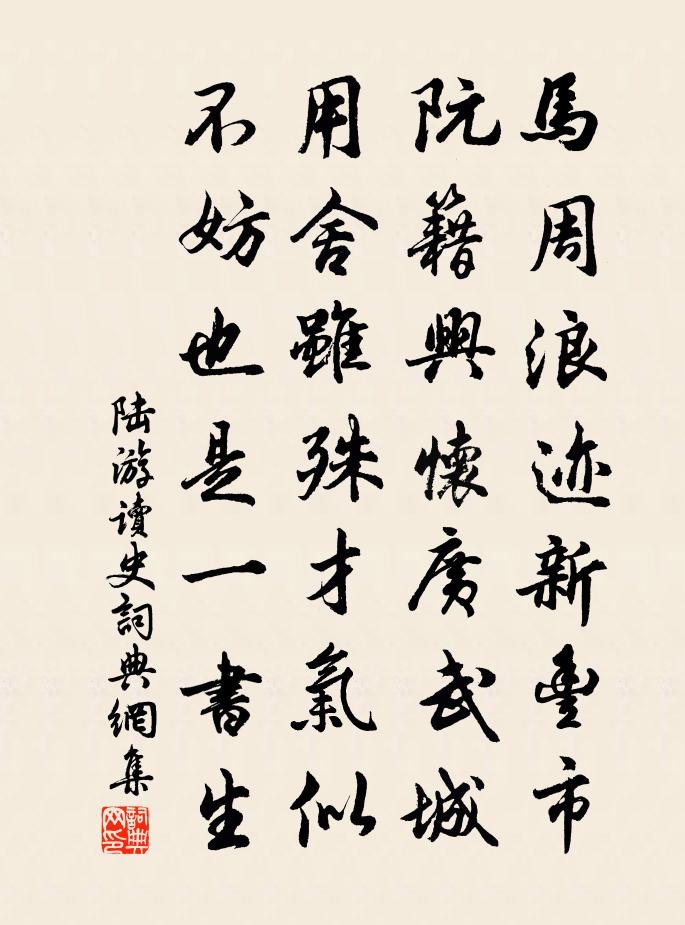 馬周浪迹新豐市
阮籍興懷廣武城
用舍雖殊才氣似
不妨也是一書生
陆游讀史詞典網集
詞典网印